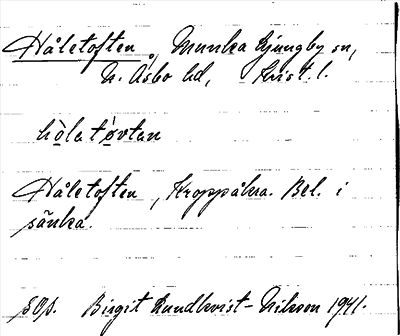 Håletoften, Munka Ljungby sn,
N. Åsbo hd, Krist. l.
hò̱letǿ̱vtan
Håletoften, Kroppåkra. Bel. i
sänka.
Birgit Lundkvist-Nilsson 1941.